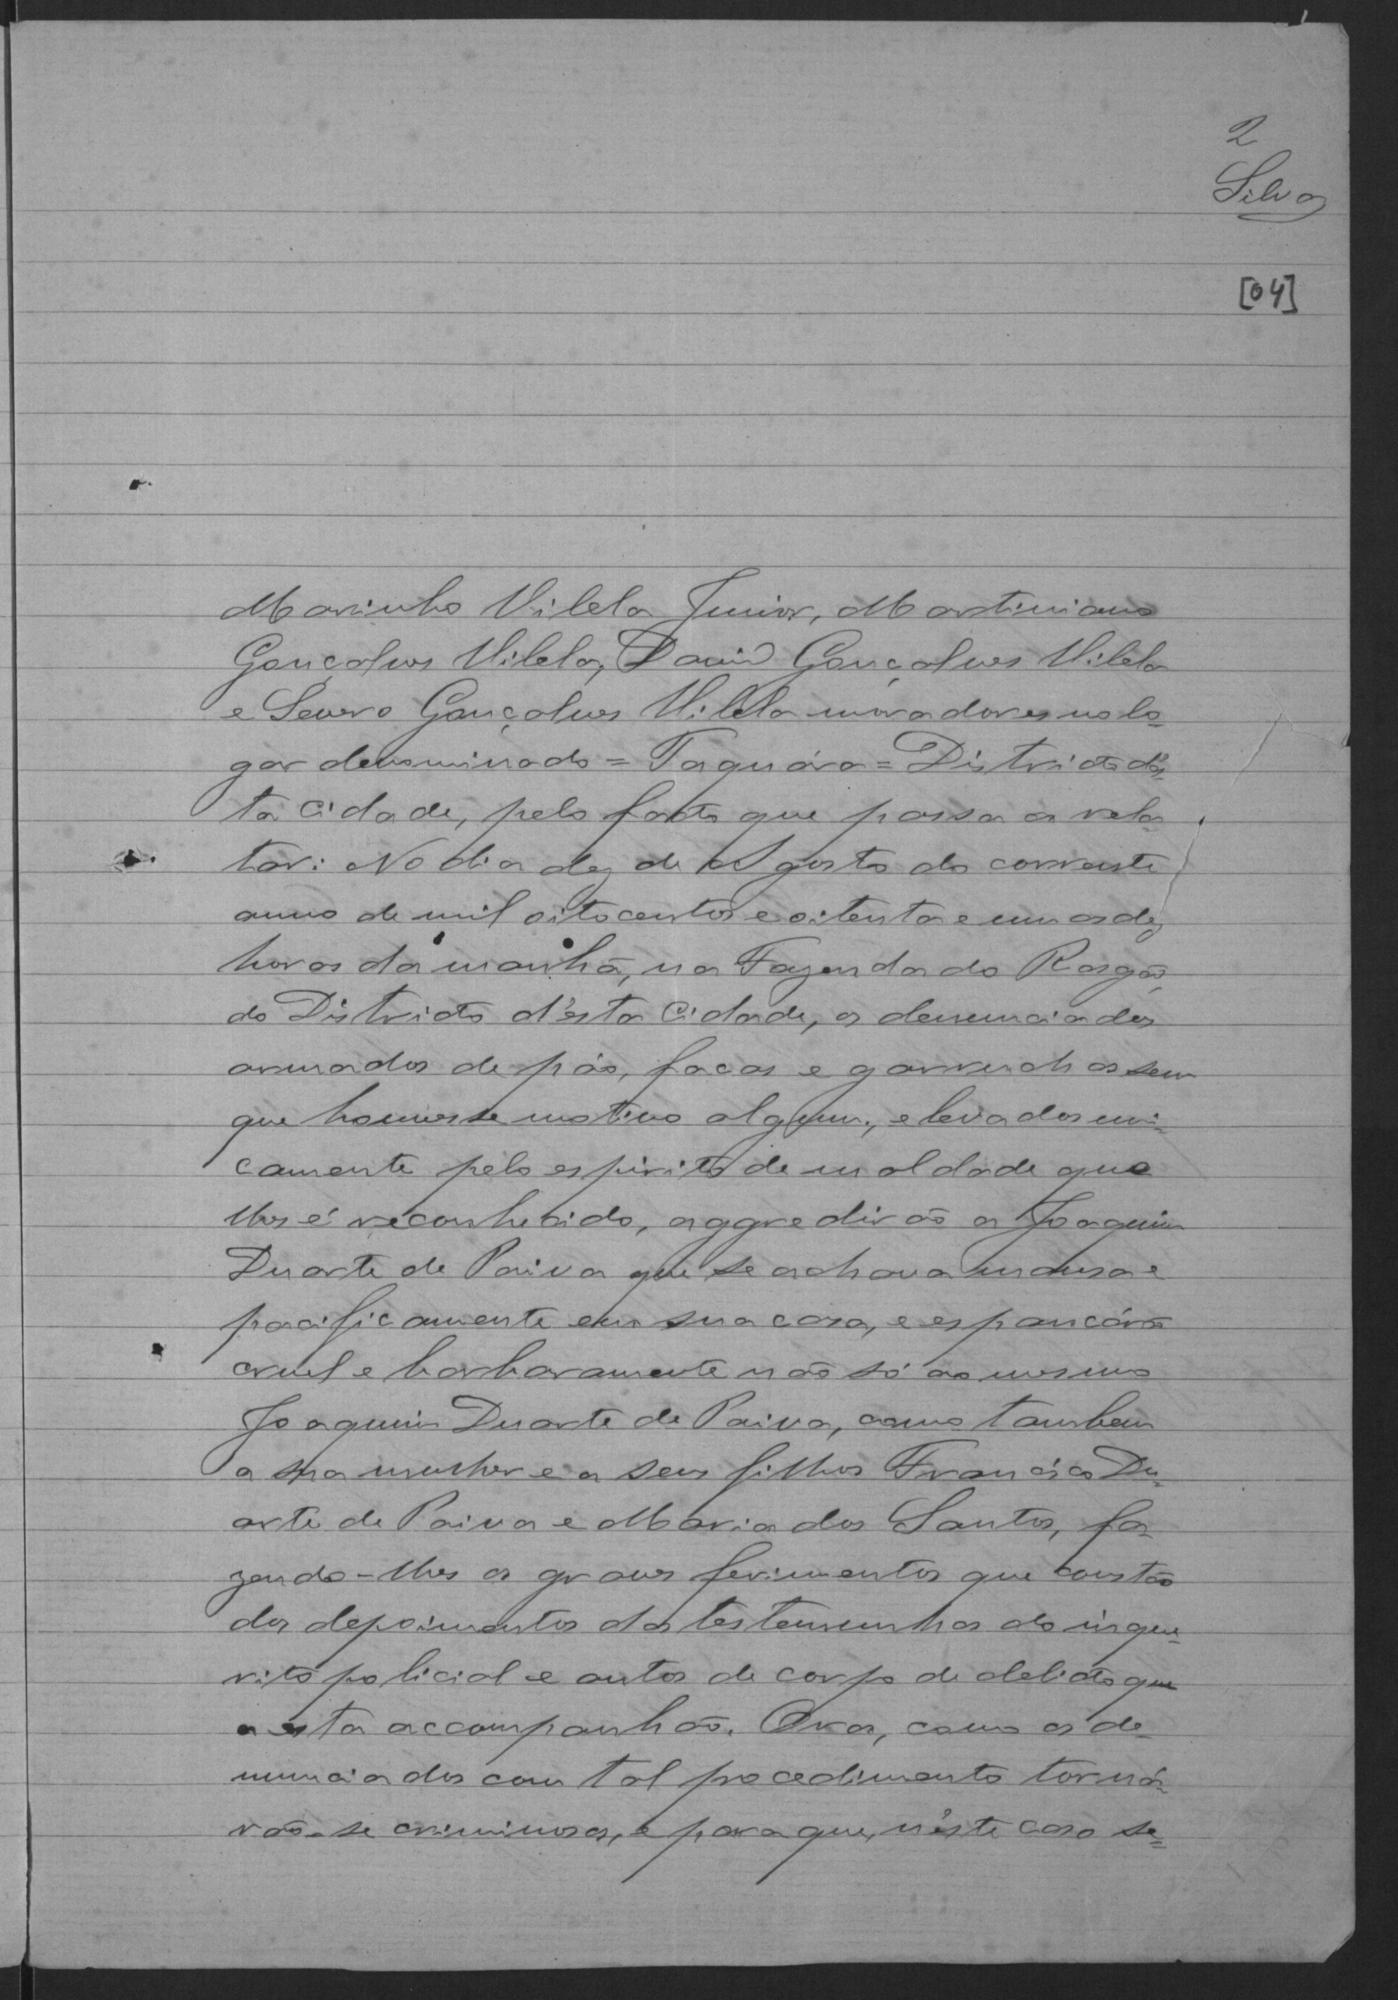 2
Silva
[04]
Marinho Vilela Junior, Martiniano
Gonçalves Vilela, David Gonçalves Vilela
e Severo Gonçalves Vilela moradores no lo-
gar denominado = Taquára = Districto d'es-
ta Cidade, pelo facto que passa a rela-
tar: No dia dez de Agosto do corrente
anno de mil oitocentos e oitenta e um as dez
horas da manhã, na Fazenda do Rasgão,
do Districto d'esta Cidade, os denunciados
armados de páo, facas e garruchas sem
que houvesse motivo algum, e levados uni-
camente pelo espirito de maldade que
lhes é reconhecido, aggredirão a Joaquim
Duarte de Paiva que se achava mansa e
pacificamente em sua casa, e espancárão
cruel e barbaramente não só ao mesmo
Joaquim Duarte de Paiva, como tambem
a sua mulher e a seus filhos Francisco Du-
arte de Paiva e Maria dos Santos, fa-
zendo-lhes os graves ferimentos que constão
dos depoimentos das testemunhas do inque-
rito policial e autos de corpo de delicto que
a esta accompanhão. Ora, como os de-
nunciados com tal procedimento torná-
rão-se criminosos, e para que, n'este caso se-